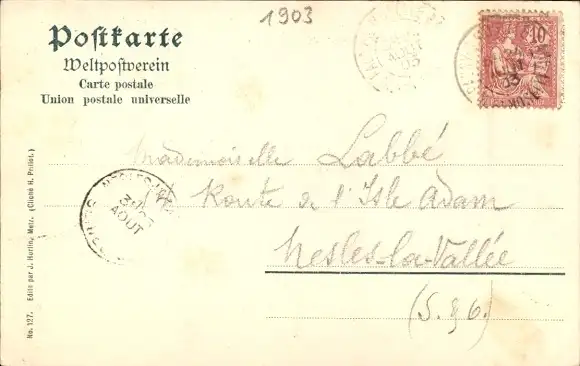 1903
Postkarte
Weltpostverein
Carte postale
Union postale universelle
10
AOUT
03
Mademoiselle Labbé
4 Route de l'Isle Adam
Nesles-la-Vallée
(S. & O.)
AOUT
No. 127. Edité par J. Herlin, Metz. (Cliché H. Prillot.)